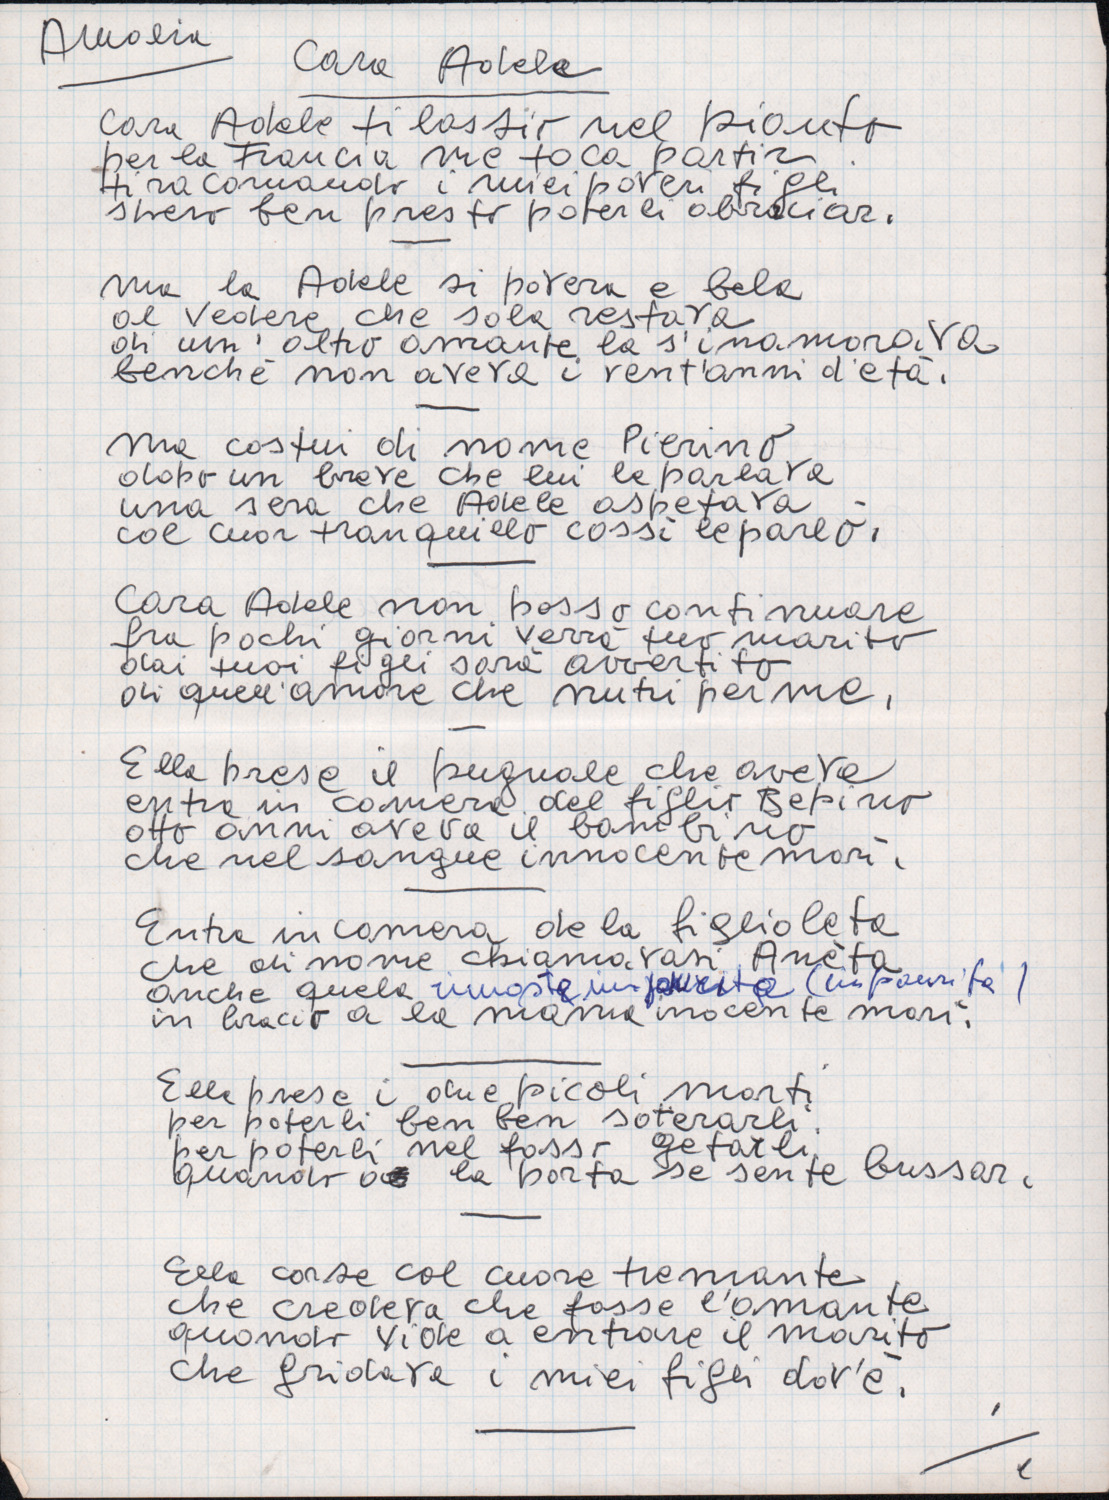 Amalia
Cara Adele
Cara Adele ti lassio nel pianto
per la Francia me toca partir
ti racomando i miei poveri figli
spero ben presto poterli abraciar.
Ma la Adele si povera e bela
al vedere che sola restava
di un' altro amante la s'inamorava
benchè non aveva i vent'anni d'età.
Ma costui di nome Pierino
dopo un breve che lui le parlava
una sera che Adele aspetava
col cuor tranquillo cossì le parlò.
Cara Adele non posso continuare
fra pochi giorni verrà tuo marito
dai tuoi figli sarà avvertito
di quell'amore che nutri per me.
Ella prese il pugnale che aveva
entra in camera del figlio Bepino
otto anni aveva il bambino
che nel sangue innocente morì.
Entra in camera de la figlioleta
che di nome chiamavasi Anèta
anche quela rimasta impaurita (impaurita)
in bracio a la mama inocente morì.
Ella prese i due picoli morti
per poterli ben ben soterarli
per poterli nel fosso getarli
quando a la porta se sente bussar.
Ella corse col cuore tremante
che credeva che fosse l'amante
quando vide a entrare il marito
che gridava i miei figli dov'è.